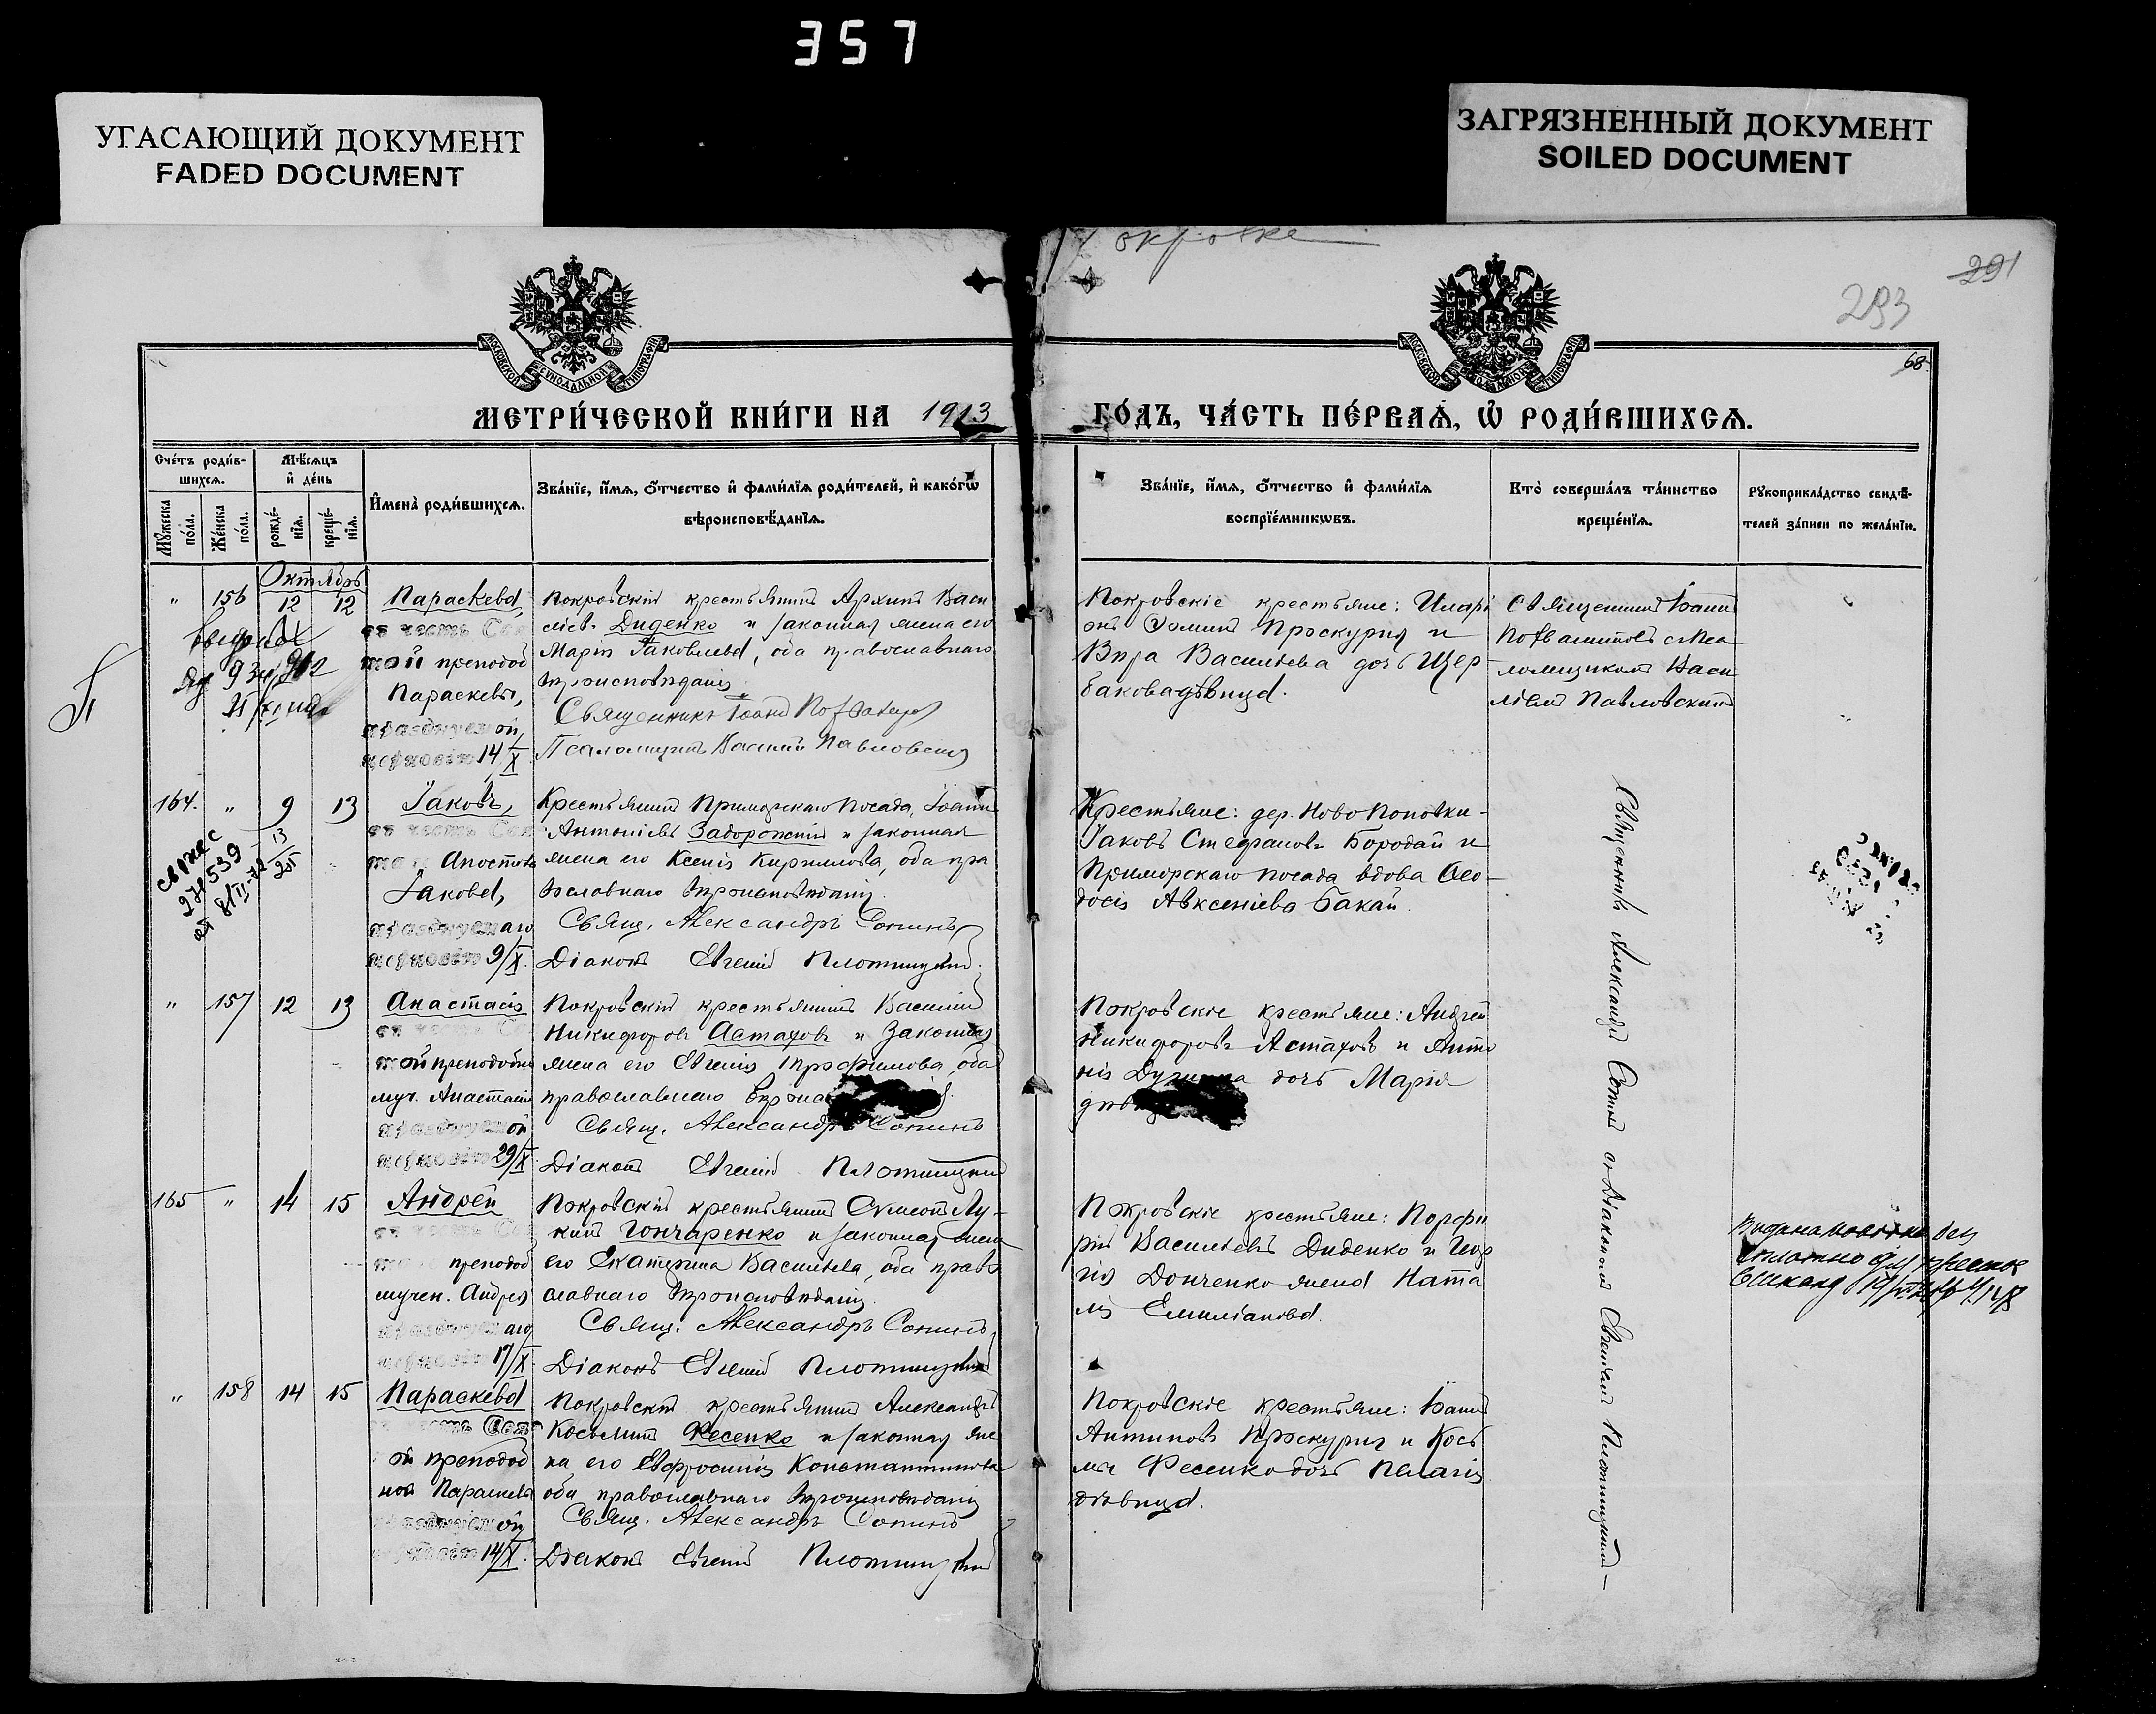 357
УГАСАЮЩИЙ ДОКУМЕНТ
FADED DOCUMENT
ЗАГРЯЗНЕННЫЙ ДОКУМЕНТ
SOILED DOCUMENT
291
293
68
МОСКОВСКОЙ СѴНОДАЛЬНОЙ ТИПОГРАФІИ
МЕТРИ́ЧЕСКОЙ КНИ́ГИ НА 1913
ГО́ДЪ, ЧА́СТЬ ПЕ́РВАѦ, Ѡ РОДИ́ВШИХСѦ.
Счéтъ роди́в-
шихсѧ.
Мꙋжеска по́ла.
Же́нска по́ла.
Мѣ́сѧцъ
и҆ де́нь
рожде́-
нїѧ.
креще́-
нїѧ.
И҆мена̀ роди́вшихсѧ.
Зва́нїе, и҆́мѧ, ѻ҆́тчество и҆ фами́лїѧ роди́телей, и҆ како́гѡ
вѣроисповѣ́данїѧ.
Зва́нїе, и҆́мѧ, ѻ҆́тчество и҆ фами́лїѧ
воспрїе́мникѡвъ.
Кто̀ соверша́лъ та́инство
креще́нїѧ.
Рꙋкоприкла́дство свидѣ́-
телей за́писи по жела́нїю.
Октябрь
" 156 12 12
Параскева
въ честь Свя
той преподоб
Параскевы,
празднуемой,
церковію 14/X
Покровскій крестьянинъ Архипъ Васи
ліев. Диденко и законная жена его
Марія Іаковлева, оба православнаго
вѣроисповѣданія.
Священникъ Іоаннъ
Псаломщикъ Василій Павловскій
Покровскіе крестьяне: Иларі
онъ Ѳоминъ Проскурня и
Вѣра Васильева дочь Щер
бакова дѣвица.
Священникъ Іоаннъ
съ Пса
ломщикомъ Васи
ліемъ Павловскимъ
164. " 9 13
Іаковъ,
въ честь Свя
Апостола
Іакова,
празднуемаго
церковію 9/X.
Крестьянинъ Приморскаго Посада, Іоаннъ
Антоніевъ Задорожній и законная
жена его Ксенія Кириллова, оба пра
вославнаго вѣроисповѣданія.
Свящ. Александръ Сопинъ
Діаконъ Евгеній Плотницкій.
Крестьяне: дер. Ново Поповки-
Іаковъ Стефановъ Бородай и
Приморскаго посада вдова Ѳео-
досія Авксеніева Бакай.
Священникъ Александръ Сопинъ съ Діакономъ Евгеніемъ Плотницкимъ
" 157 12 13
Анастасія
той преподобно
муч. Анастасіи
празднуемой
церковію 29/X
Покровскій крестьянинъ Василій
Никифоровъ Астаховъ и законная
жена его Евгенія Трофимова, оба
православнаго
Свящ. Александръ Сопинъ
Діаконъ Евгеній Плотницкій
Покровскіе крестьяне: Андрей
Никифоровъ Астаховъ и Анто
нія дочь Марія
165 " 14 15
Андрей
преподоб
мучен. Андрея
празднуемаго
церковію 17/X.
Покровскій крестьянинъ Сѵмеонъ Лу-
кинъ Гончаренко и законная жена
его Екатерина Васильева, оба право
славнаго вѣроисповѣданія.
Свящ. Александръ Сопинъ
Діаконъ Евгеній Плотницкій
Покровскіе крестьяне: Порфи
рій Васильевъ Диденко и Геор
гія Донченко жена Ната
лія Емиліанова.
" 158 14 15
Параскева
ой преподоб
ной Параскевы
празднуемой
церковію 14/X.
Покровскій крестьянинъ Александръ
Косьминъ Фесенко и законная же
на его Евфросинія Константинова
оба православнаго вѣроисповѣданія
Свящ. Александръ Сопинъ
Діаконъ Евгеній Плотницкій
Покровскіе крестьяне: Іоаннъ
Антиповъ Проскурня и Кось
мы Фесенко дочь Пелагія
дѣвица.